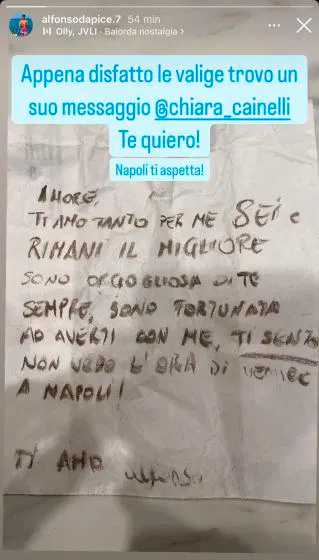 alfonsodapice.7 54 min
Olly, JVLI • Balorda nostalgia >
Appena disfatto le valige trovo un
suo messaggio @chiara_cainelli
Te quiero!
Napoli ti aspetta!
AMORE,
TI AMO TANTO PER ME SEI e
RIMANI IL MIGLIORE
SONO ORGOGLIOSA DI TE
SEMPRE, SONO FORTUNATA
AD AVERTI CON ME, TI SENTO
NON VEDO L'ORA DI VENIRE
A NAPOLI!
TI AMO